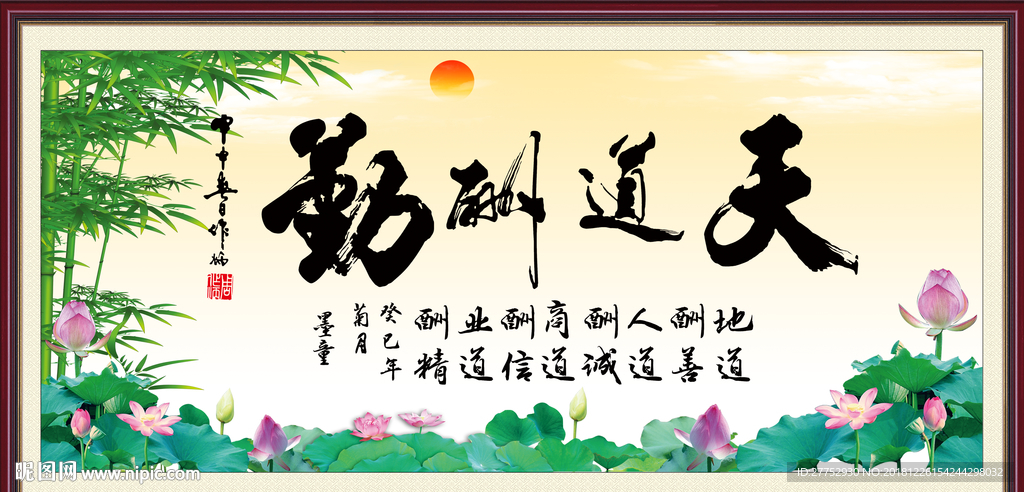 天道酬勤
地道
酬善
人道
酬诚
商道
酬信
业道
酬精
癸巳年
菊月
墨童
昵图网 www.nipic.com
ID:27752930 NO:20181226154244298032